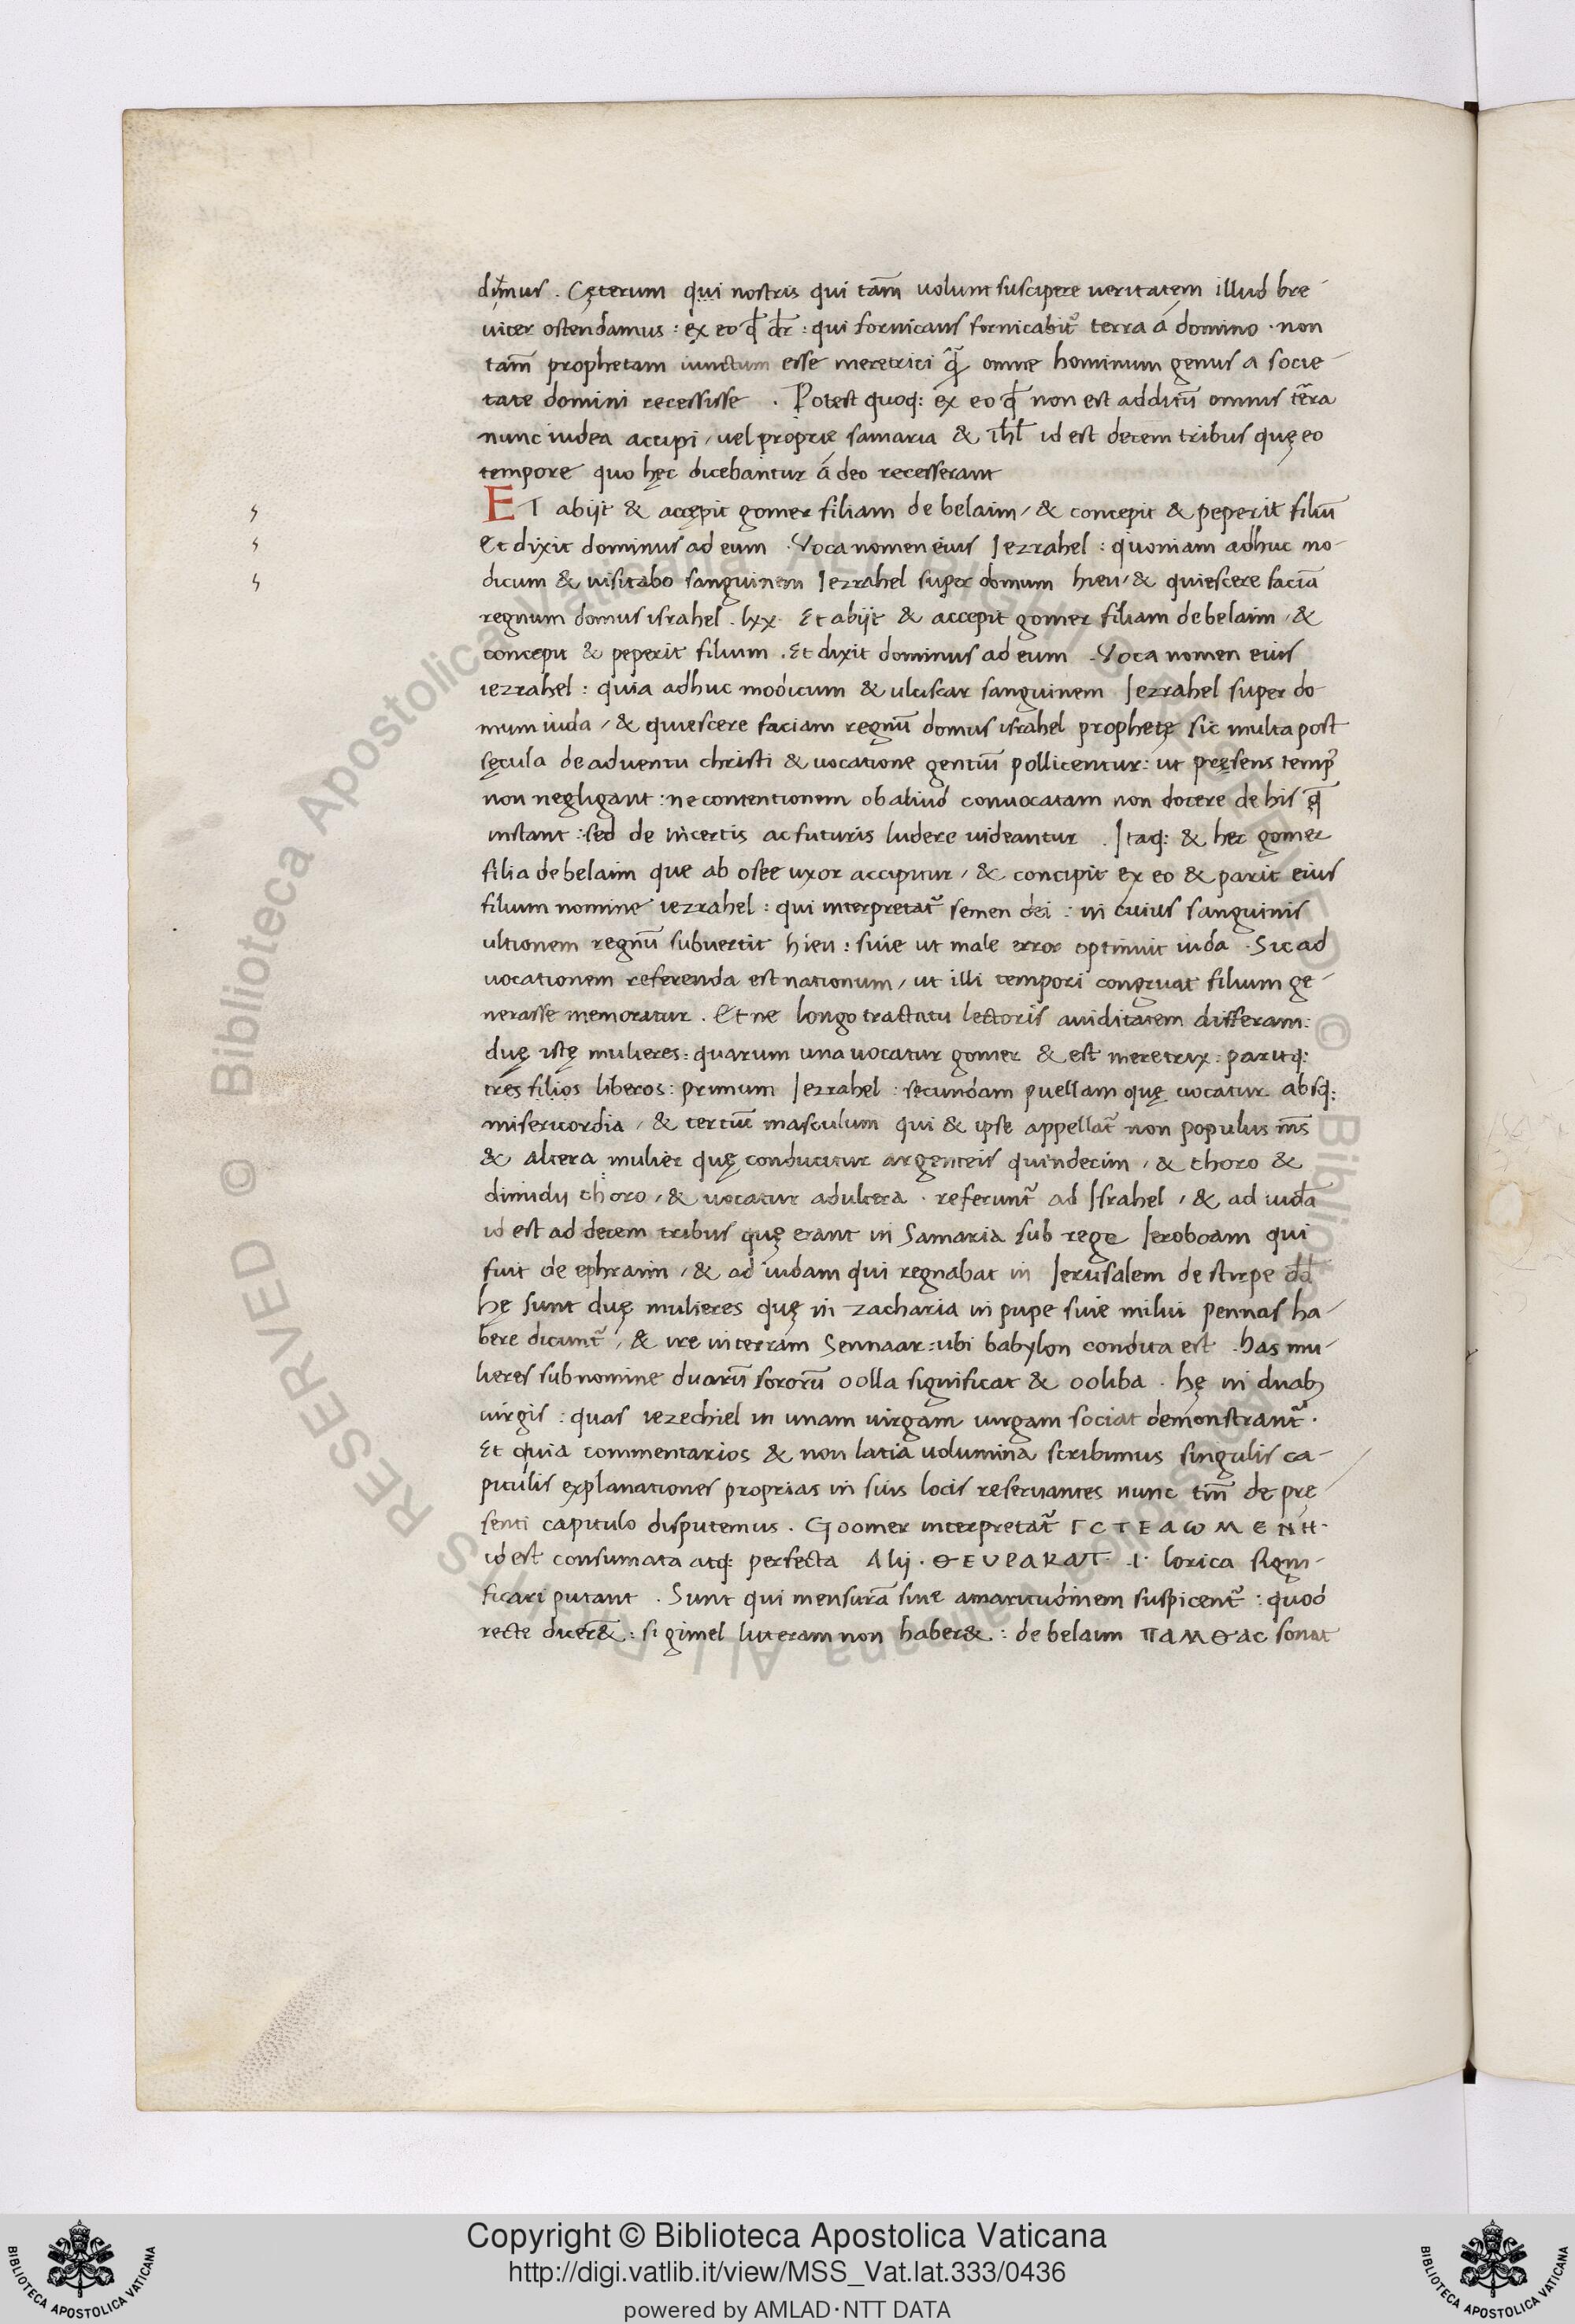 dim̄us . Cęterum qui nostris qui tam̄ uolunt suscipere ueritatem illud bre-
uiter ostendamus : ex eo qđ dr̄ : qui fornicans fornicabit᷑ terra á domino . non
tam̄ prophetam iunctum esse meretrici q̄ omne hominum genus a socie-
tate domini recessisse . Potest quoq: ex eo qđ non est additū omnis t̄ra
nunc iudea accipi / uel proprie samaria & ihl̄ id est decem tribus quę eo
tempore quo hęc dicebantur á deo recesserant
ET abijt & accepit gomer filiam debelaim / & concepit & peperit filiū
Et dixit dominus ad eum . Voca nomen eius Jezrahel : quoniam adhuc mo-
dicum & uisitabo sanguinem Jezrahel super domum hieu / & quiescere faciā
regnum domus israhel . lxx . Et abijt & accepit gomer filiam debelaim / &
concepit & peperit filium . Et dixit dominus ad eum . Voca nomen eius
iezrahel : quia adhuc modicum & ulciscar sanguinem Jezrahel super do
mum iuda / & quiescere faciam regnū domus israhel prophetę sic multa post
sęcula de aduentu christi & uocatione gentiū pollicentur : ut pręsens temp᷒
non negligant : ne contentionem ob aliud conuocatam non docere de his q̄
instant : sed de incertis ac futuris ludere uideantur . Itaq: & hec gomer
filia debelaim que ab osee uxor accipitur / & concipit ex eo & parit eius
filium nomine iezrahel : qui interpretat᷑ semen dei : in cuius sanguinis
ultionem regnū subuertit hieu : siue ut male error optinuit iuda . Sic ad
uocationem referenda est nationum / ut illi tempori congruat filium ge-
nerasse memoratur . Et ne longo tractatu lectoris auiditatem differam :
duę istę mulieres : quarum una uocatur gomer & est meretrix : paritq:
tres filios liberos : primum Jezrahel : secundam puellam quę uocatur absq:
misericordia / & tertiū masculum qui & ipse appellat᷑ non populus m̄s
& altera mulier quę conducitur argenteis quindecim / & choro &
dimidij choro / & uocatur adultera . referunt᷑ ad Israhel / & ad iuda
id est ad decem tribus quę erant in Samaria sub rege Jeroboam qui
fuit de ephraim / & ad iudam qui regnabat in Jerusalem de stirpe dđ
hę sunt duę mulieres quę in zacharia in pupe siue milui pennas ha-
bere dicunt᷑ / & ire in terram Sennaar : ubi babylon condita est . has mu-
lieres sub nomine duarū sororū oolla significat & ooliba . hę in duab;
uirgis : quas iezechiel in unam uirgam uirgam sociat demonstrant᷑ .
Et quia commentarios & non latia uolumina scribimus singulis ca-
pitulis explanationes proprias in suis locis reseruantes nunc tm̄ de pre
senti capitulo disputemus . Goomer interpretat᷑ ΓCTEAWMENH .
id est consumata atq: perfecta Alij . ΘEUPAKAT . i . lorica signi-
ficari putant . Sunt qui mensurā siue amaritudinem suspicent᷑ : quod
recte dicer& : si gimel litteram non haber& : debelaim ΠΑΜΘΑC sonat
Copyright © Biblioteca Apostolica Vaticana
http://digi.vatlib.it/view/MSS_Vat.lat.333/0436
powered by AMLAD·NTT DATA
BIBLIOTECA APOSTOLICA VATICANA
BIBLIOTECA APOSTOLICA VATICANA